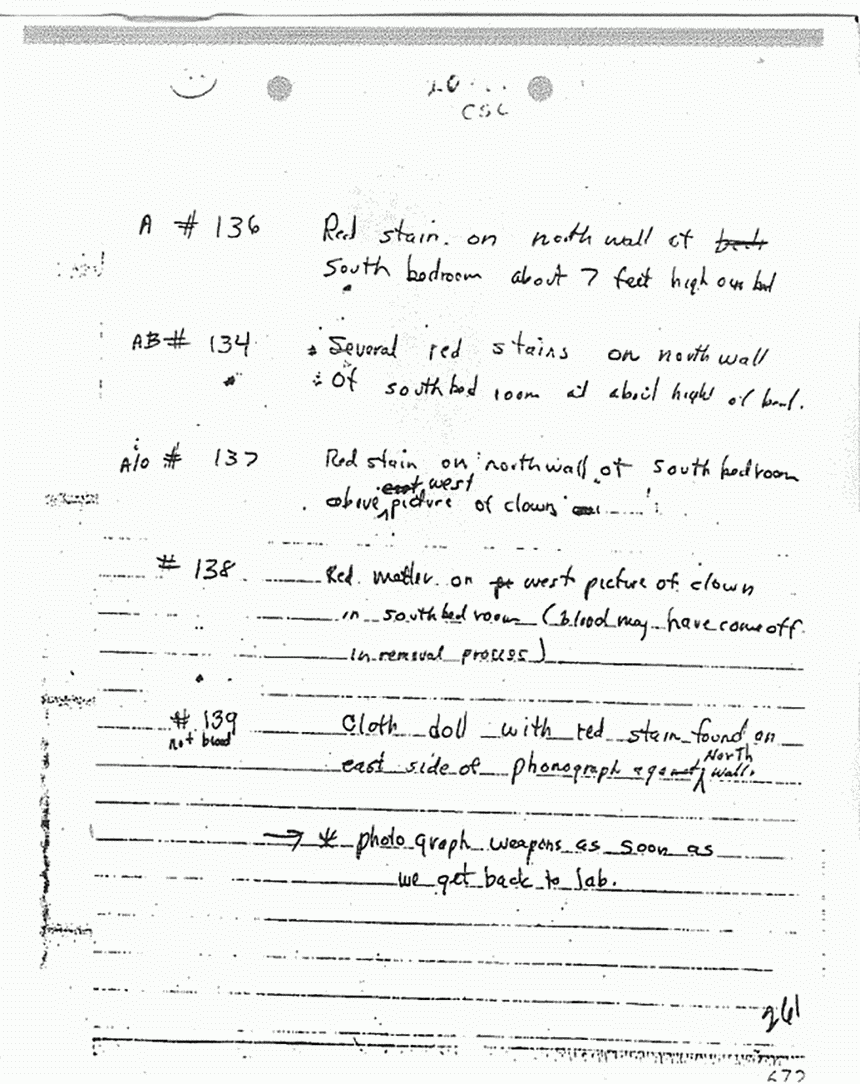 CSC
A # 136 Red stain on north wall of
South bedroom about 7 feet high over bed
AB # 134 Several red stains on north wall
Of south bed room at about hight of bed.
A10 # 137 Red stain on north wall of south bedroom
west
above picture of clown
# 138 Red matter on west picture of clown
in south bed room (blood may have come off
in removal process)
# 139 Cloth doll with red stain found on
not blood
North
east side of phonograph against wall.
→ * photo graph weapons as soon as
we get back to lab.
261
672